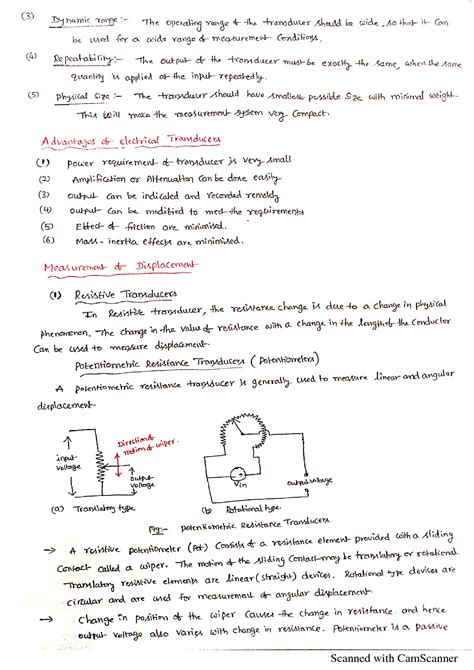 (3) Dynamic range:- The operating range of the transducer should be wide, so that it can
be used for a wide range of measurement conditions.
(4) Repeatability:- The output of the transducer must be exactly the same, when the same
quantity is applied at the input repeatedly.
(5) Physical Size:- The transducer should have smallest possible size with minimal weight.
This will make the measurement system very compact.
Advantages of electrical Transducers
(1) Power requirement of transducer is very small
(2) Amplification or Attenuation can be done easily
(3) output can be indicated and recorded remotely
(4) output can be modified to meet the requirements
(5) Effect of friction are minimised.
(6) Mass-inertia effects are minimised.
Measurement of Displacement
(1) Resistive Transducers
In Resistive transducer, the resistance change is due to a change in physical
phenomenon. The change in the value of resistance with a change in the length of the conductor
can be used to measure displacement.
Potentiometric Resistance Transducers (Potentiometers)
A potentiometric resistance transducer is generally used to measure linear and angular
displacement.
Direction of
motion of wiper.
input
voltage
output
voltage
Vin
output voltage
(a) Translatory type
(b) Rotational type.
Fig:- potentiometric Resistance Transducers
→ A resistive potentiometer (Pot) consists of a resistance element provided with a sliding
contact called a wiper. The motion of the sliding contact may be translatory or rotational.
Translatory resistive elements are linear (straight) devices. Rotational type devices are
circular and are used for measurement of angular displacement.
→ Change in position of the wiper causes the change in resistance and hence
output voltage also varies with change in resistance. Potentiometer is a passive
Scanned with CamScanner